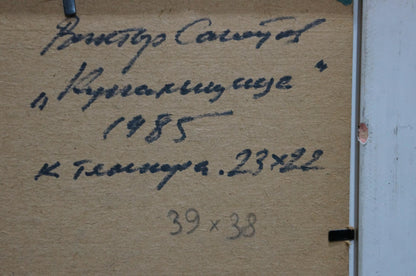 Виктор Саитов
„Купальщица“
1985
к темпера. 23×22
39 × 38